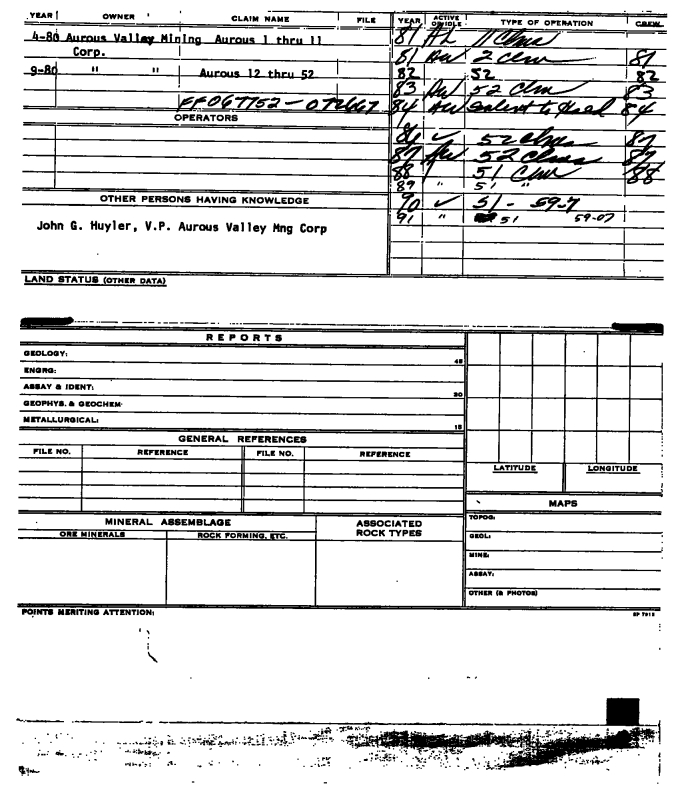 YEAR OWNER CLAIM NAME FILE
4-80 Aurous Valley Mining Aurous 1 thru 11
Corp.
9-80 " " Aurous 12 thru 52
FF067752 - 072667
OPERATORS
OTHER PERSONS HAVING KNOWLEDGE
John G. Huyler, V.P. Aurous Valley Mng Corp
YEAR ACTIVE OR IDLE TYPE OF OPERATION CREW
81 11 Clms
81 AW 2 Clm 81
82 52 82
83 AW 52 Clm 83
84 AW intent to Hold 84
86 ✓ 52 clms 87
87 AW 52 Clms 87
88 51 Clm 88
89 " 51 "
90 ✓ 51 - 59-7
91 " 51 59-07
LAND STATUS (OTHER DATA)
REPORTS
GEOLOGY: 45
ENGRG:
ASSAY & IDENT: 30
GEOPHYS. & GEOCHEM:
METALLURGICAL: 15
GENERAL REFERENCES
FILE NO. REFERENCE FILE NO. REFERENCE
LATITUDE LONGITUDE
MINERAL ASSEMBLAGE
ORE MINERALS ROCK FORMING, ETC.
ASSOCIATED
ROCK TYPES
MAPS
TOPOG:
GEOL:
MINE:
ASSAY:
OTHER (& PHOTOS)
POINTS MERITING ATTENTION: SP 7915